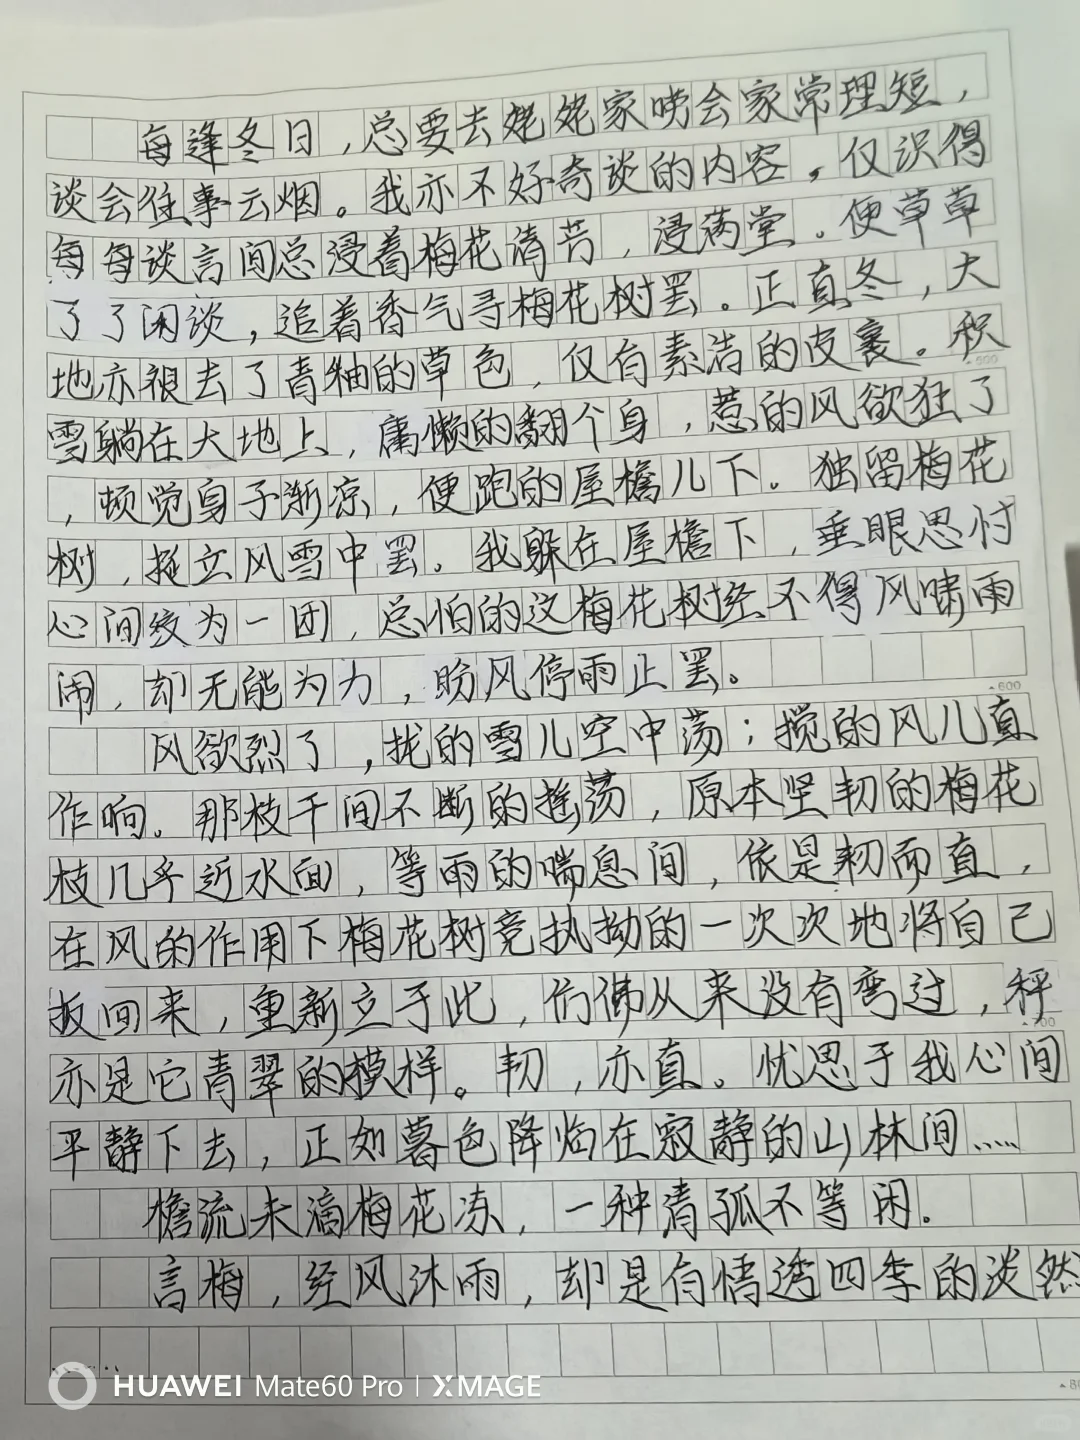 每逢冬日,总要去姥姥家唠会家常理短,
谈会往事云烟。我亦不好奇谈的内容。仅识得
每每谈言间总浸着梅花清苦,浸满堂。便草草
了了闲谈,追着香气寻梅花树罢。正直冬,大
地亦褪去了青釉的草色,仅有素洁的皮裹。积
雪躺在大地上,庸懒的翻个身,惹的风欲狂了
,顿觉身子渐凉,便跑的屋檐儿下。独留梅花
树,挺立风雪中罢。我躲在屋檐下,垂眼思忖
心间绞为一团,总怕的这梅花树经不得风啸雨
闹,却无能为力,盼风停雨止罢。
风欲烈了,拢的雪儿空中荡;搅的风儿直
作响。那枝干间不断的摇荡,原本坚韧的梅花
枝几乎近水面,等雨的喘息间,依是韧而直,
在风的作用下梅花树竞执拗的一次次地将自己
扳回来,重新立于此,仿佛从来没有弯过,秤
亦是它青翠的模样。韧,亦直。忧思于我心间
平静下去,正如暮色降临在寂静的山林间……
檐流未滴梅花冻,一种清孤不等闲。
言梅,经风沐雨,却是有情透四季的淡然
……
HUAWEI Mate60 Pro | XMAGE